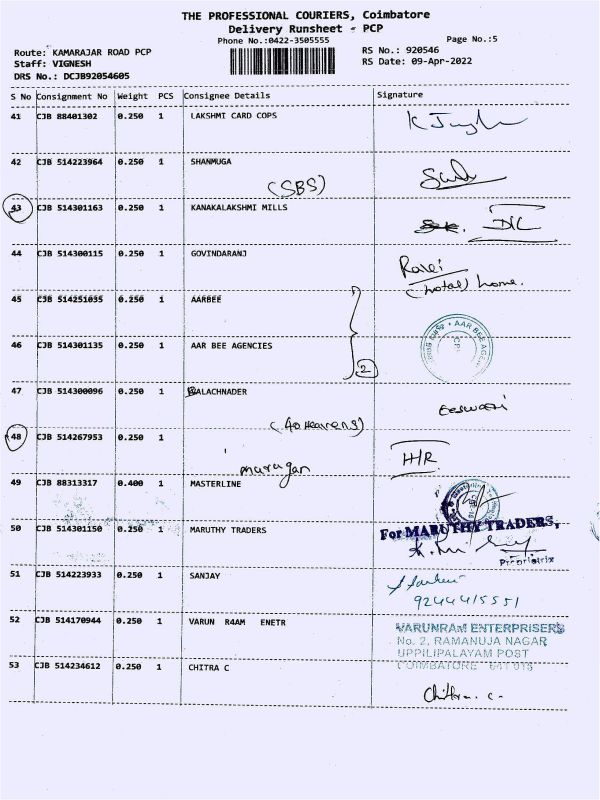 THE PROFESSIONAL COURIERS, Coimbatore
Delivery Runsheet - PCP
Phone No.:0422-3505555
Page No.:5
Route: KAMARAJAR ROAD PCP
RS No.: 920546
Staff: VIGNESH
RS Date: 09-Apr-2022
DRS No.: DCJB92054605
S No Consignment No Weight PCS Consignee Details Signature
41 CJB 88401302 0.250 1 LAKSHMI CARD COPS
42 CJB 514223964 0.250 1 SHANMUGA
(SBS)
43 CJB 514301163 0.250 1 KANAKALAKSHMI MILLS
44 CJB 514300115 0.250 1 GOVINDARANJ
(hotal) home.
45 CJB 514251035 0.250 1 AARBEE
46 CJB 514301135 0.250 1 AAR BEE AGENCIES
2
47 CJB 514300096 0.250 1 BALACHNADER
Eeswari
48 CJB 514267953 0.250 1
H/R
murugan
49 CJB 88313317 0.400 1 MASTERLINE
50 CJB 514301150 0.250 1 MARUTHY TRADERS
For MARUTHY TRADERS,
Proprietrix
51 CJB 514223933 0.250 1 SANJAY
9244415551
52 CJB 514170944 0.250 1 VARUN R4AM ENETR
VARUNRAM ENTERPRISERS
No. 2, RAMANUJA NAGAR
UPPILIPALAYAM POST
COIMBATORE - 641 015
53 CJB 514234612 0.250 1 CHITRA C
Chithra. c.